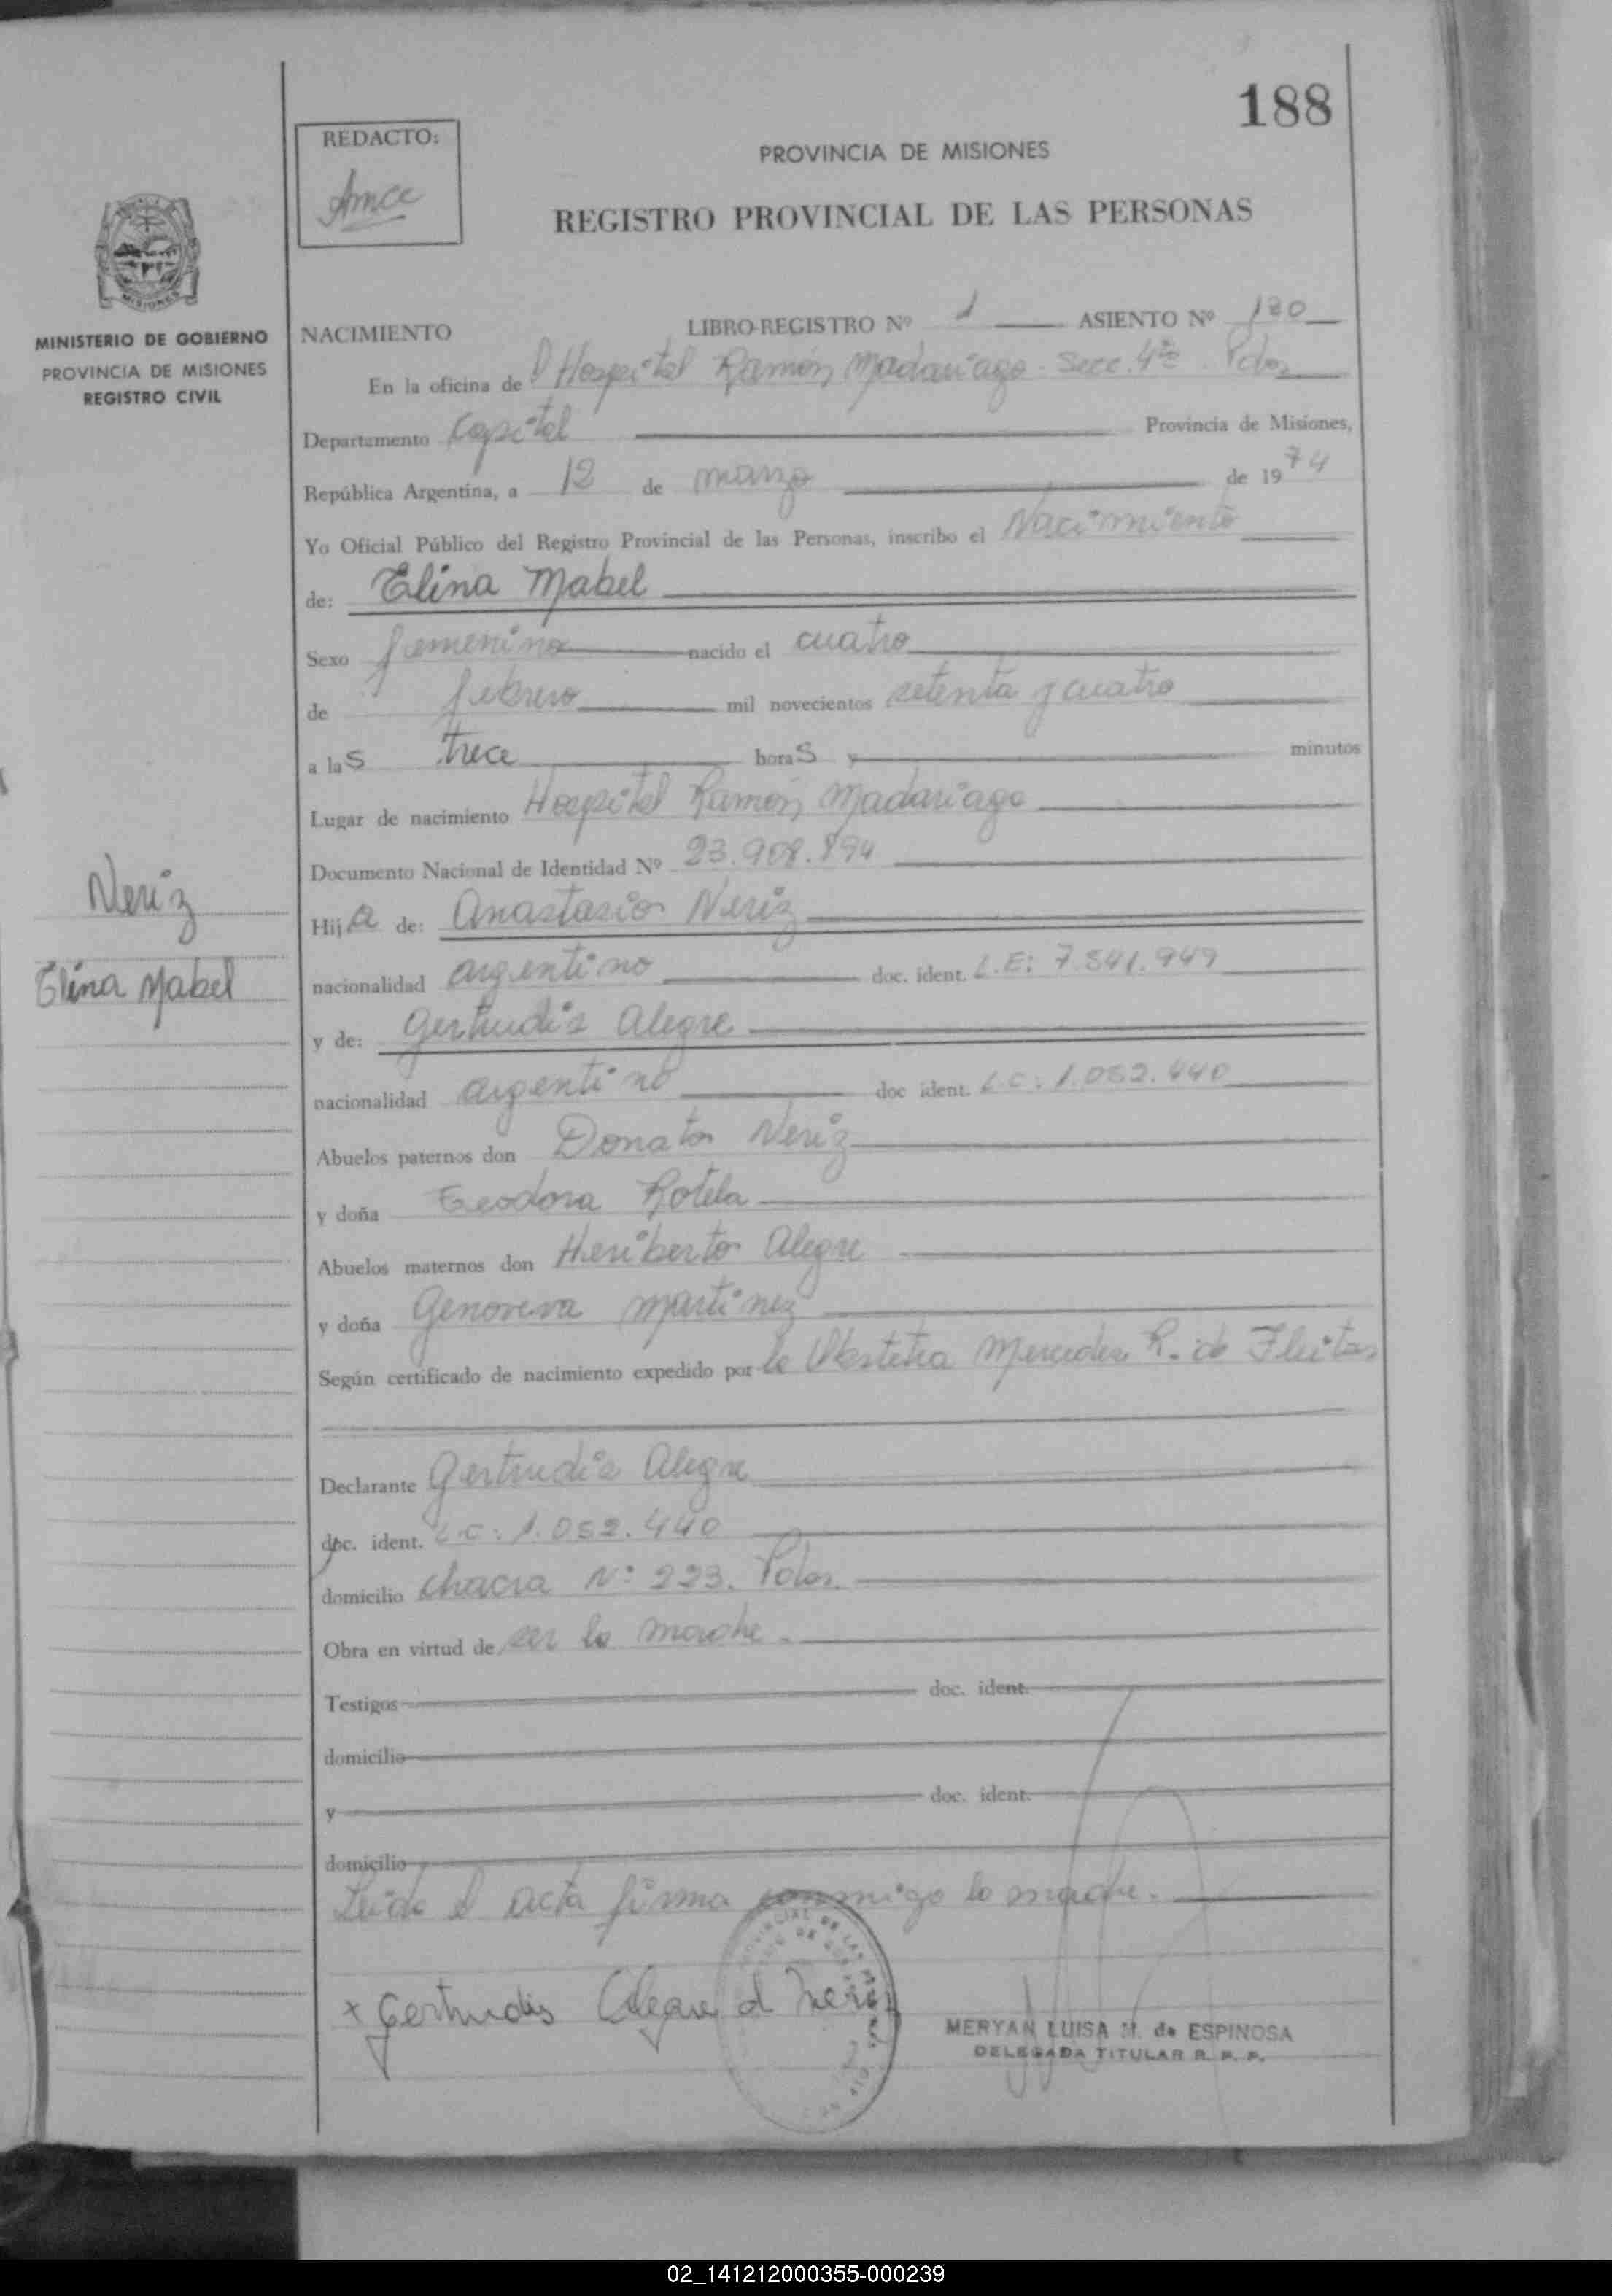 188
REDACTO:
PROVINCIA DE MISIONES
REGISTRO PROVINCIAL DE LAS PERSONAS
MISIONES
MINISTERIO DE GOBIERNO
PROVINCIA DE MISIONES
REGISTRO CIVIL
NACIMIENTO LIBRO-REGISTRO Nº 1 ASIENTO Nº 180
En la oficina de Hospital Ramón Madariaga - Secc. 4ta. Pdas
Departamento Capital Provincia de Misiones,
República Argentina, a 12 de marzo de 1974
Yo Oficial Público del Registro Provincial de las Personas, inscribo el Nacimiento
de: Elina Mabel
Sexo femenino nacido el cuatro
de febrero mil novecientos setenta y cuatro
a las trece horas y minutos
Lugar de nacimiento Hospital Ramón Madariaga
Documento Nacional de Identidad Nº 23.908.894
Neriz
Hija de: Anastasio Neriz
Elina Mabel
nacionalidad argentino doc. ident. L.E: 7.541.949
y de: Gertrudis Alegre
nacionalidad argentina doc ident. L.C: 1.052.440
Abuelos paternos don Donato Neriz
y doña Teodora Rotela
Abuelos maternos don Heriberto Alegre
y doña Genoveva Martinez
Según certificado de nacimiento expedido por la Obstetra Mercedes R. de Fleitas
Declarante Gertrudis Alegre
doc. ident. L.C: 1.052.440
domicilio chacra Nº 223. Pdas.
Obra en virtud de ser la madre.
Testigos doc. ident.
domicilio
y doc. ident.
domicilio
Leida el acta firma conmigo la madre.
x Gertrudis Alegre d Neriz
MERYAN LUISA M. de ESPINOSA
DELEGADA TITULAR R. P. P.
02_141212000355-000239